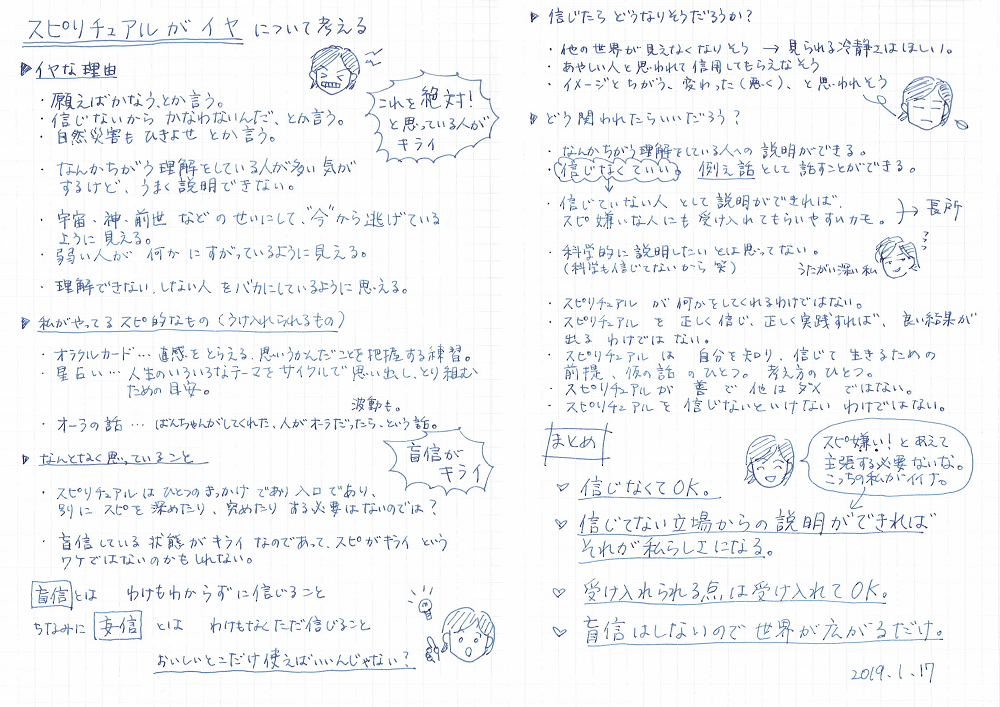 スピリチュアルがイヤ について考える
▶イヤな理由
・願えばかなう、とか言う。
・信じないから かなわないんだ、とか言う。
・自然災害も ひきよせ とか言う。
これを絶対！
と思っている人が
キライ
・なんかちがう理解をしている人が多い気が
するけど、うまく説明できない。
・宇宙・神・前世 などのせいにして、"今"から逃げている
ように見える。
・弱い人が 何かにすがっているように見える。
・理解できない、しない人 をバカにしているように思える。
▶私がやってるスピ的なもの（うけ入れられるもの）
・オラクルカード… 直感をとらえる、思いうかんだことを把握する練習。
・星占い… 人生のいろいろなテーマをサイクルで思い出し、とり組む
ための目安。
波動も。
・オーラの話 … ばんちゃんがしてくれた、人がオーラだったら、という話。
▶なんとなく思っていること
盲信が
キライ
・スピリチュアルはひとつのきっかけであり入口であり、
別にスピを深めたり、究めたり する必要はないのでは？
・盲信している状態がキライなのであって、スピがキライという
ワケではないのかもしれない。
盲信とは わけもわからずに信じること
ちなみに 妄信 とは わけもなくただ信じること
おいしいとこだけ使えばいいんじゃない？
▶信じたら どうなりそうだろうか？
・他の世界が見えなくなりそう → 見られる冷静さはほしい。
・あやしい人と思われて信用してもらえなそう
・イメージとちがう、変わった(悪く)、と思われそう
▶どう関われたらいいだろう？
・なんかちがう理解をしている人への説明ができる。
信じなくていい。 例え話として 話すことができる。
・信じていない人 として 説明ができれば、
スピ嫌いな人にも受け入れてもらいやすいカモ。
→ 長所
・科学的に説明したいとは思ってない。
(科学も信じてないから 笑)
うたがい深い私
フフフ
・スピリチュアル が何かをしてくれるわけではない。
・スピリチュアル を 正しく信じ、正しく実践すれば、良い結果が
出る わけではない。
・スピリチュアル は 自分を知り、信じて生きるための
前提、仮の話 のひとつ。考え方のひとつ。
・スピリチュアルが 善 で 他はダメ ではない。
・スピリチュアルを 信じないといけない わけではない。
まとめ
スピ嫌い！とあえて
主張する必要ないな。
こっちの私がイイナ。
♡ 信じなくてOK。
♡ 信じてない立場からの説明ができれば
それが私らしさになる。
♡ 受け入れられる点は受け入れてOK。
♡ 盲信はしないので世界が広がるだけ。
2019.1.17